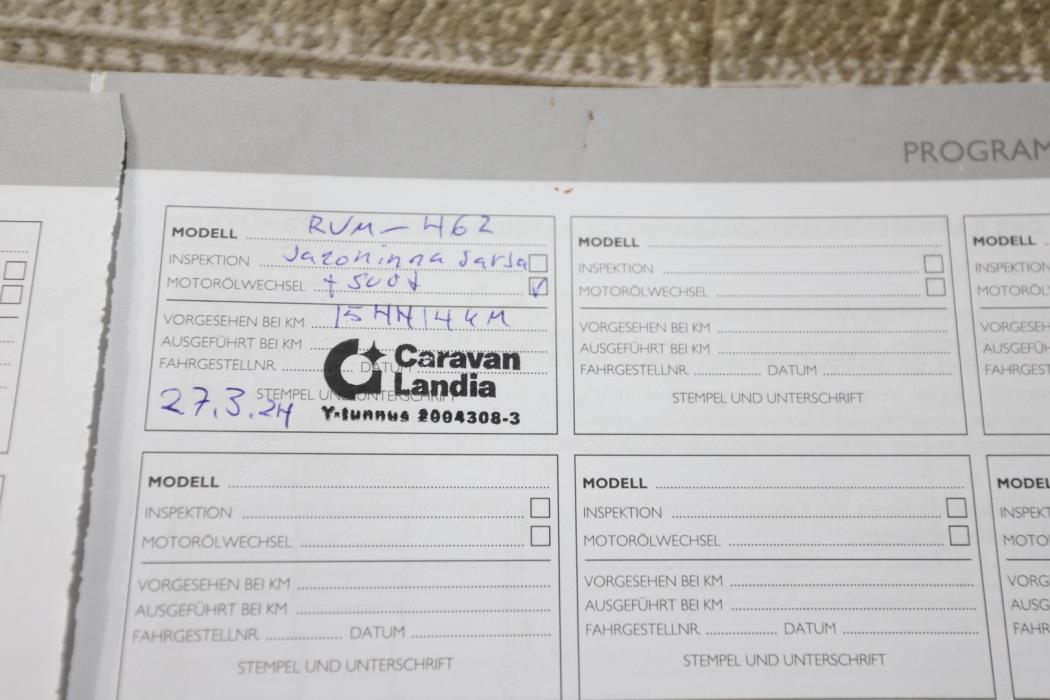 PROGRAM
MODELL RVM-462
INSPEKTION Jazoninna sarja
MOTORÖLWECHSEL + suod
VORGESEHEN BEI KM 154414 KM
AUSGEFÜHRT BEI KM
FAHRGESTELLNR. DATUM
STEMPEL UND UNTERSCHRIFT
27.3.24
Caravan
Landia
Y-tunnus 2004308-3
MODELL
INSPEKTION
MOTORÖLWECHSEL
VORGESEHEN BEI KM
AUSGEFÜHRT BEI KM
FAHRGESTELLNR. DATUM
STEMPEL UND UNTERSCHRIFT
MODELL
INSPEKTION
MOTORÖL
VORGESEH
AUSGEFÜH
FAHRGEST
MODELL
INSPEKTION
MOTORÖLWECHSEL
VORGESEHEN BEI KM
AUSGEFÜHRT BEI KM
FAHRGESTELLNR. DATUM
STEMPEL UND UNTERSCHRIFT
MODELL
INSPEKTION
MOTORÖLWECHSEL
VORGESEHEN BEI KM
AUSGEFÜHRT BEI KM
FAHRGESTELLNR. DATUM
STEMPEL UND UNTERSCHRIFT
MODEL
INSPEKT
MOTO
VORG
AUSG
FAHR